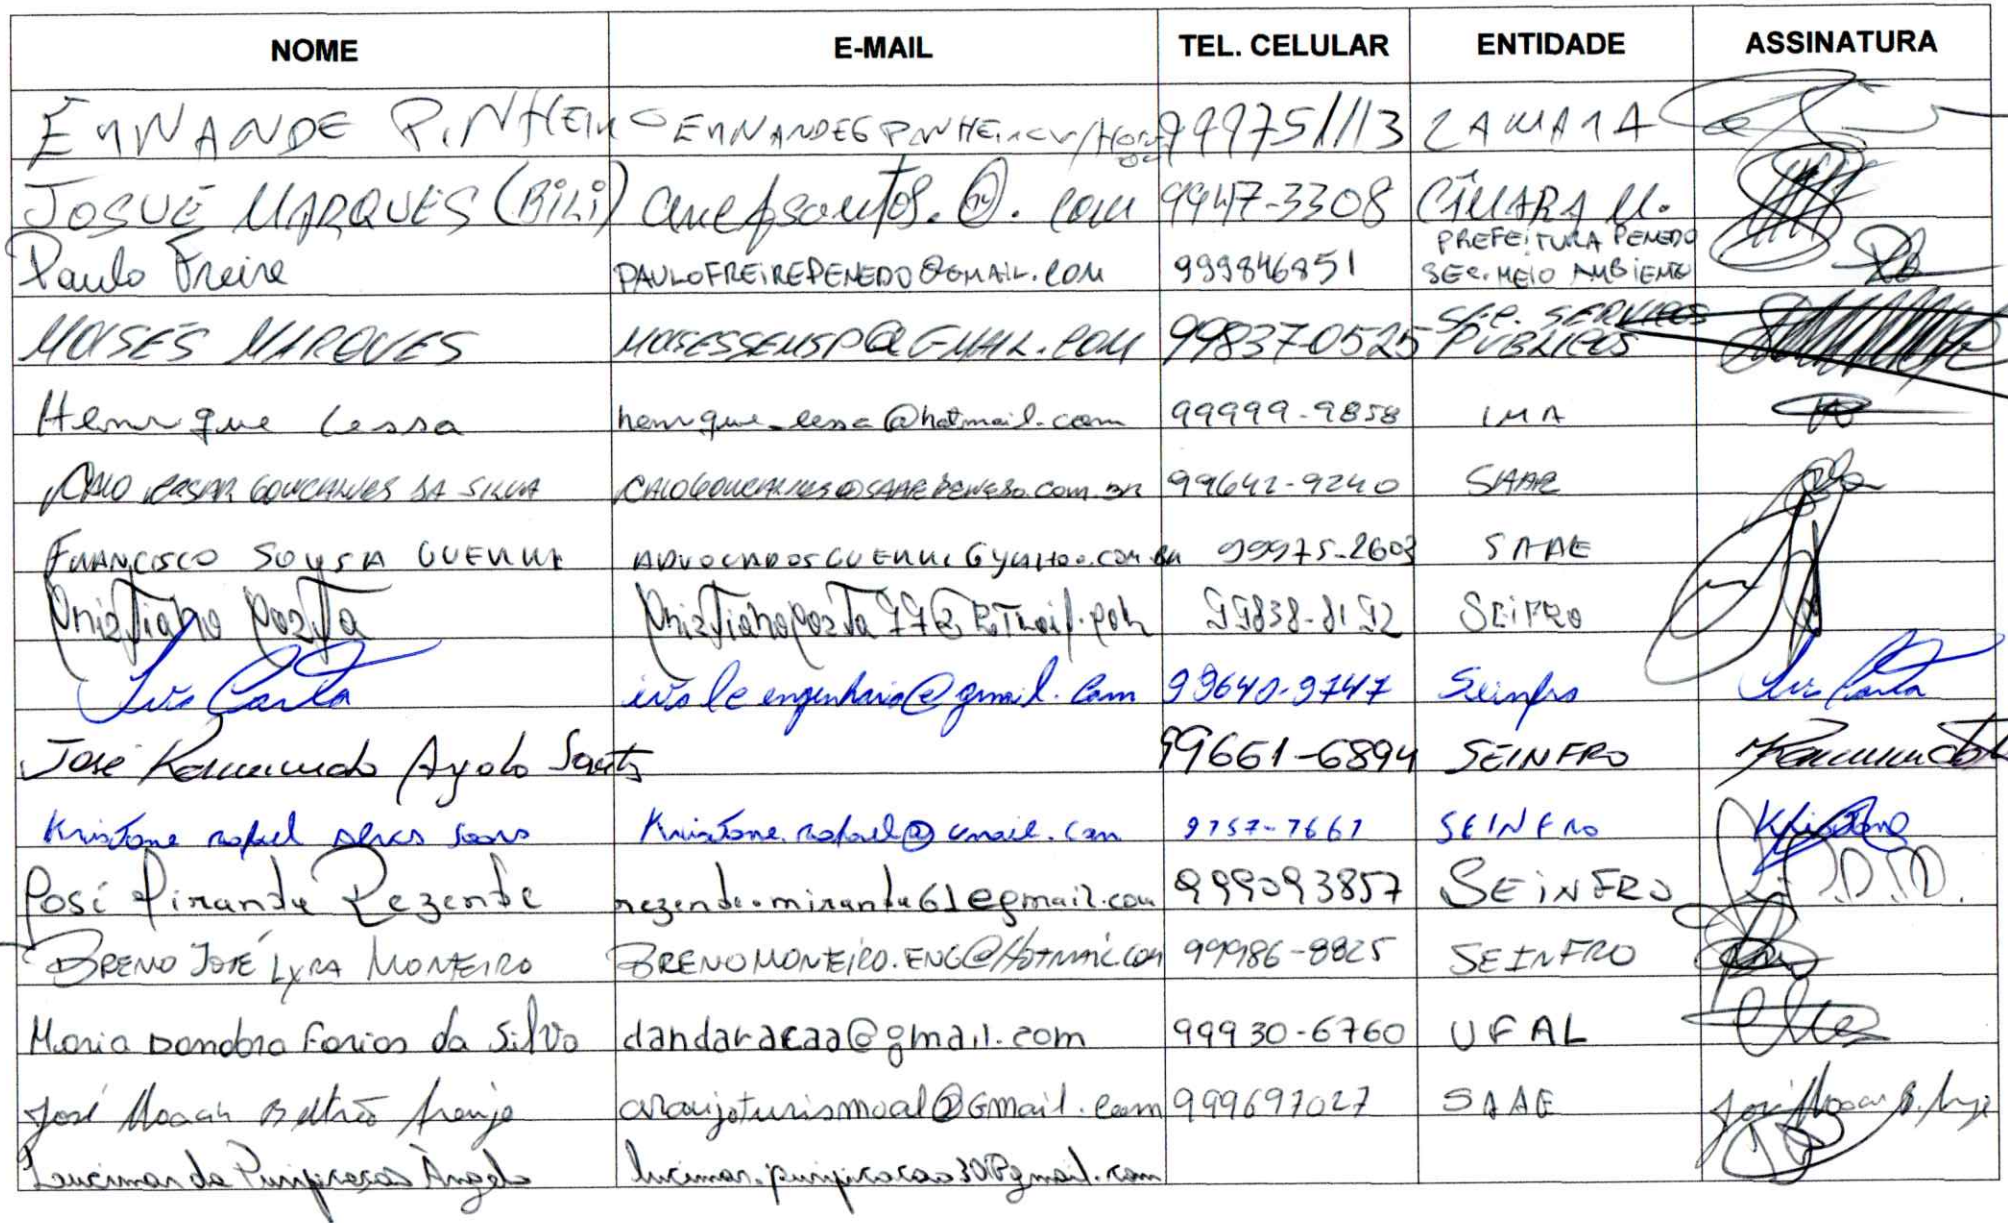 NOME E-MAIL TEL. CELULAR ENTIDADE ASSINATURA
ERNANDE PINHEIRO 999751113 CAMARA
JOSUÉ MARQUES (BILI) 9947-3308 CÂMARA M.
Paulo Freire PAULOFREIREPENEDO@GMAIL.COM 999846851 PREFEITURA PENEDO
SEC. MEIO AMBIENTE
MOISÉS MARQUES MOISESSEMSP@GMAIL.COM 99837-0525 SEC. SERVIÇOS
PÚBLICOS
Henrique Lessa henrique_lessa@hotmail.com 99999-9858 IMA
CAIO CESAR GONCALVES DA SILVA CAIOGONCALVES@SAAEPENEDO.COM.BR 99642-9240 SAAE
FRANCISCO SOUSA GUERRA 99975-2603 SAAE
Cristiano Costa 99838-8192 SEIFRO
99640-9747 Seinfro
José Raimundo Ayolo Santos 99661-6894 SEINFRO Raimundo
Kristone rafael Alves Kristone.rafael@gmail.com 9757-7661 SEINFRO Kristone
José Miranda Rezende rezende.miranda61@gmail.com 999093857 SEiNFRO
BRENO JOSÉ LYRA MONTEIRO 99986-8825 SEINFRO
Maria Dandara Farias da Silva dandaracaa@gmail.com 99930-6760 UFAL
José Moacir Beltrão Araujo araujoturismoal@Gmail.com 999697027 SAAE José Moacir B. Araujo
Lucimar da Purificação Ângelo lucimar.purificacao30@gmail.com